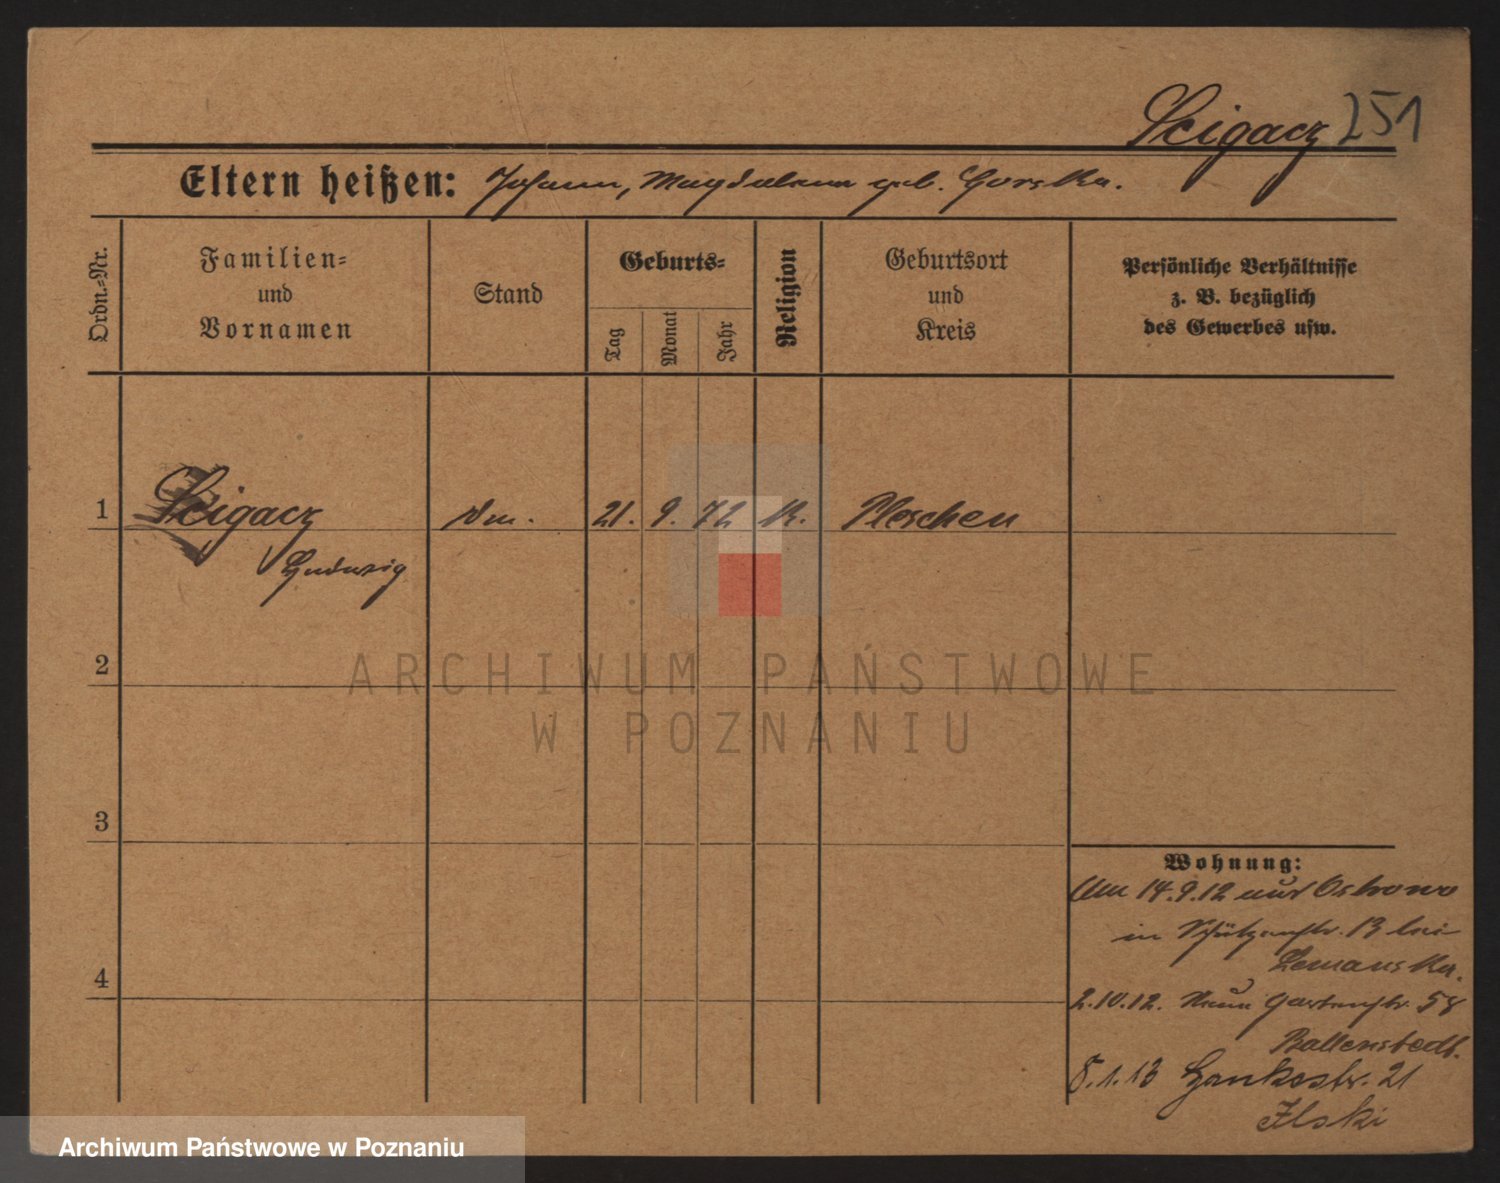 Scigacz 251
Eltern heißen: Johann, Magdalena geb. Gorska.
Ordn.-Nr.
Familien-
und
Vornamen
Stand
Geburts-
Tag
Monat
Jahr
Religion
Geburtsort
und
Kreis
Persönliche Verhältnisse
z. B. bezüglich
des Gewerbes usw.
1 Scigacz 21. 9. 72 K. Pleschen
Ludwig
2
ARCHIWUM PAŃSTWOWE
W POZNANIU
3
Wohnung:
Am 14.9.12 aus Ostrowo
in Schützenstr. 13 bei
Lemanska.
2.10.12. Neue Gartenstr. 58
Ballenstedt.
4
8.1.13 21
Ilski
Archiwum Państwowe w Poznaniu